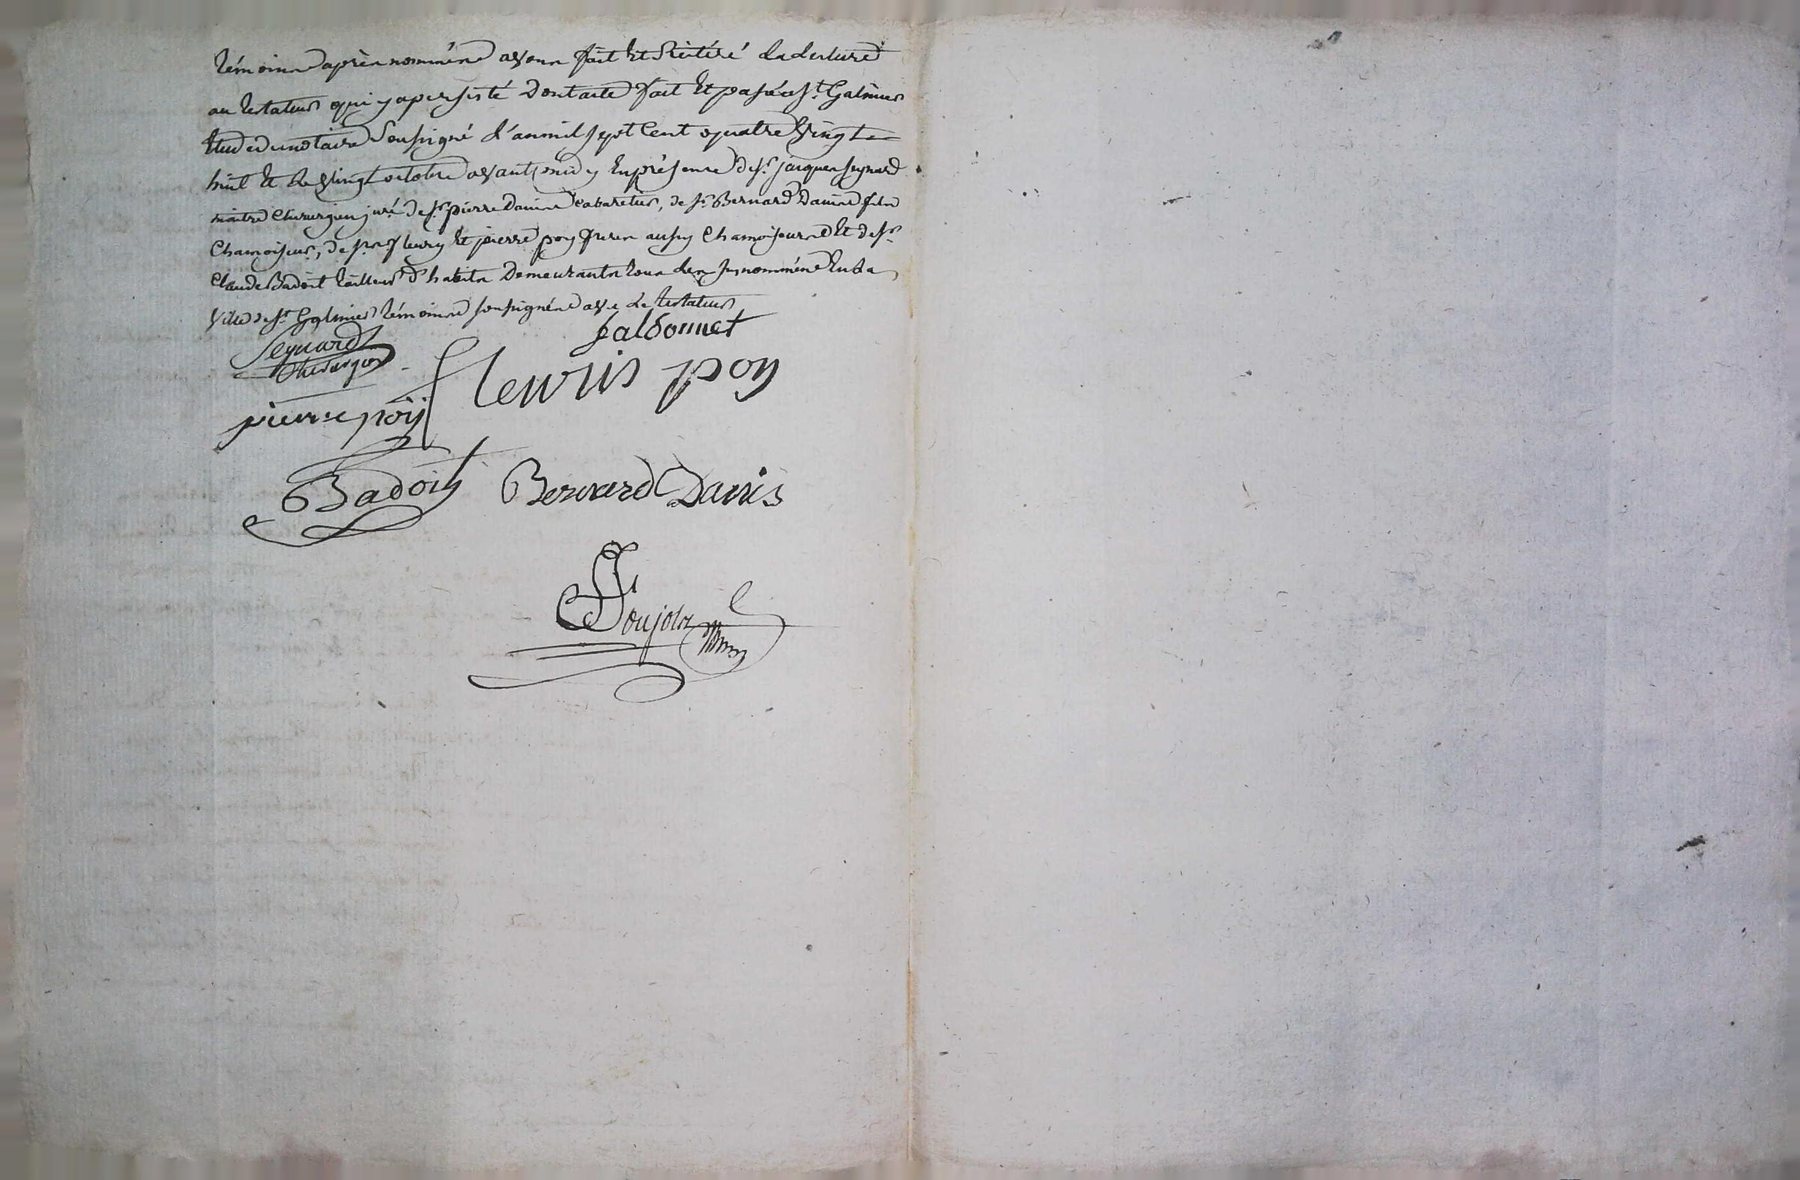 témoins après nommés avons fait et réitéré la lecture
au testateur qui y a persisté dont acte fait et passé a St. Galmier
étude du notaire soussigné l'an mil sept cent quatre vingt
huit et le vingt octobre avant midy en présence de sr. jacques seynard
maitre chirurgien juré de sr. pierre Danis cabaretier, de sr. Bernard Danis fils
Chamoiseur, de srs. fleury et pierre poy freres aussy Chamoiseurs et de sr.
Claude Badoit tailleur d'habits demeurants tous les susnommés en la
ville de St. Galmier témoins soussignés avec le testateur
Jaldonnet
Seynard
Chirurgien
fleuris poy
pierre poÿ
Badoit Bernard Danis
Poujolz